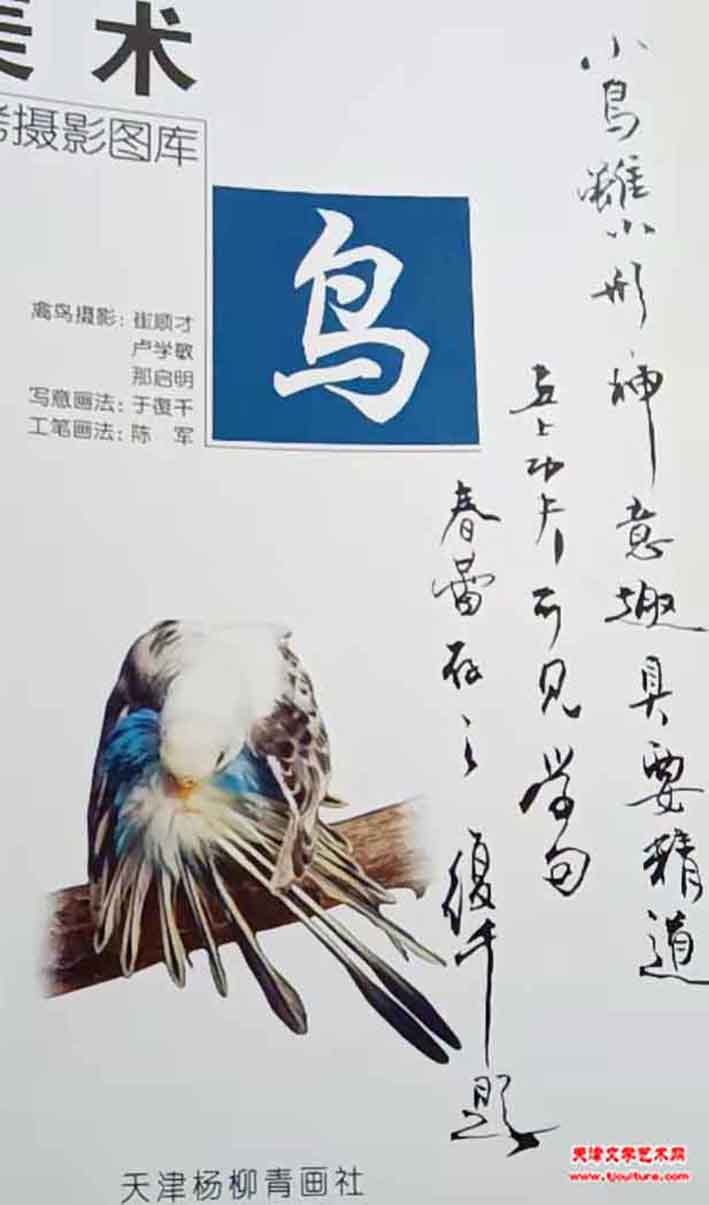 美术
考摄影图库
鸟
禽鸟摄影：崔顺才
卢学敏
那启明
写意画法：于復千
工笔画法：陈 军
小鸟虽小形神意趣具要精道
上功 可见学
春蕾存之 復千题
天津杨柳青画社
天津文学艺术网
www.tjculture.com